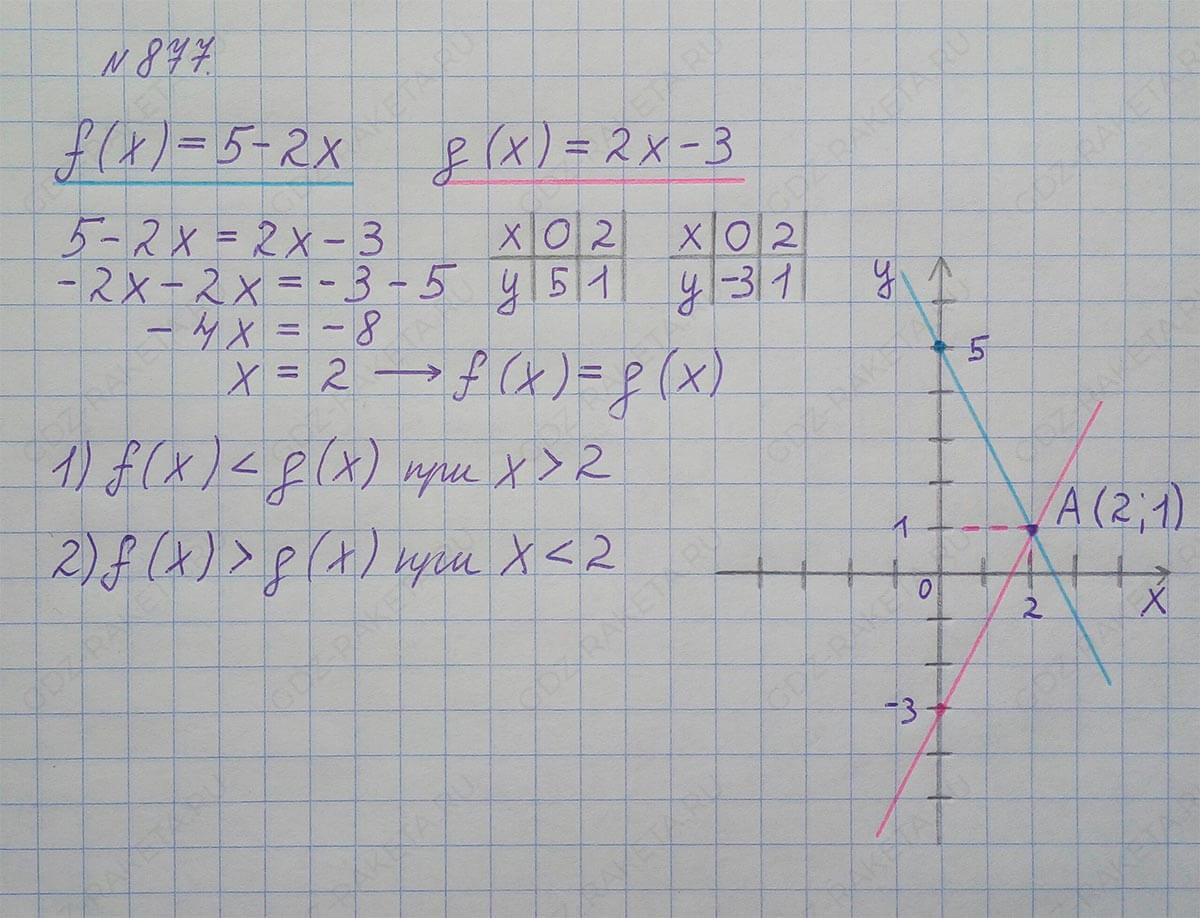 N 877.
f(x) = 5 - 2x g(x) = 2x - 3
5 - 2x = 2x - 3
-2x - 2x = -3 - 5
-4x = -8
x = 2 → f(x) = g(x)
x 0 2
y 5 1
x 0 2
y -3 1
1) f(x) < g(x) при x > 2
2) f(x) > g(x) при x < 2
y
5
1
A(2;1)
0
2
x
-3
GDZ-RAKETA.RU